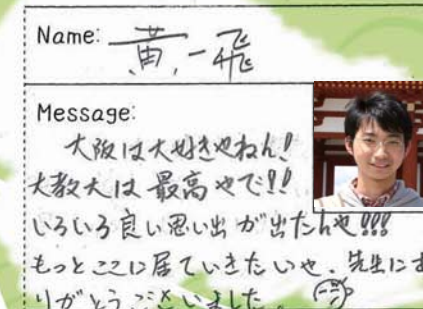 Name: 黄一飛
Message:
大阪は大好きやねん!
大教大は最高やで!!
いろいろ良い思い出が出たんや!!!
もっとここに居ていきたいや、先生にあ
りがとうございました。